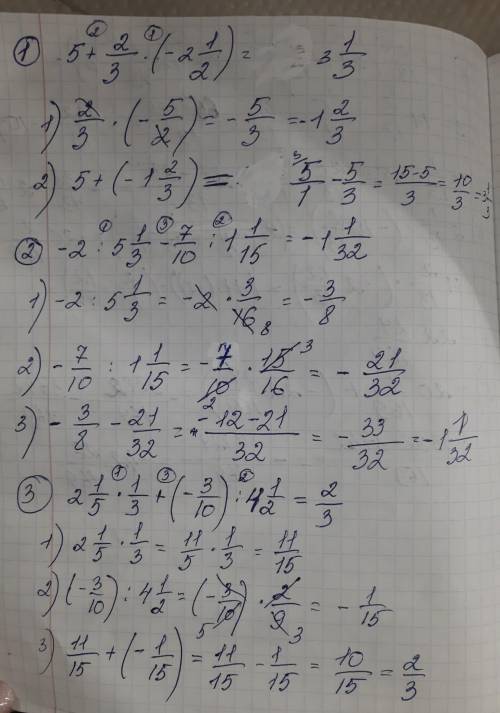 ① 5 + 2/3 · (-2 1/2) = 3 1/3
1) 2/3 · (-5/2) = -5/3 = -1 2/3
2) 5 + (-1 2/3) = 5/1 - 5/3 = (15-5)/3 = 10/3 = 3 1/3
② -2 : 5 1/3 - 7/10 : 1 1/15 = -1 1/32
1) -2 : 5 1/3 = -2 · 3/16 = -3/8
2) -7/10 : 1 1/15 = -7/10 · 15/16 = -21/32
3) -3/8 - 21/32 = (-12-21)/32 = -33/32 = -1 1/32
③ 2 1/5 · 1/3 + (-3/10) : 4 1/2 = 2/3
1) 2 1/5 · 1/3 = 11/5 · 1/3 = 11/15
2) (-3/10) : 4 1/2 = (-3/10) · 2/9 = -1/15
3) 11/15 + (-1/15) = 11/15 - 1/15 = 10/15 = 2/3